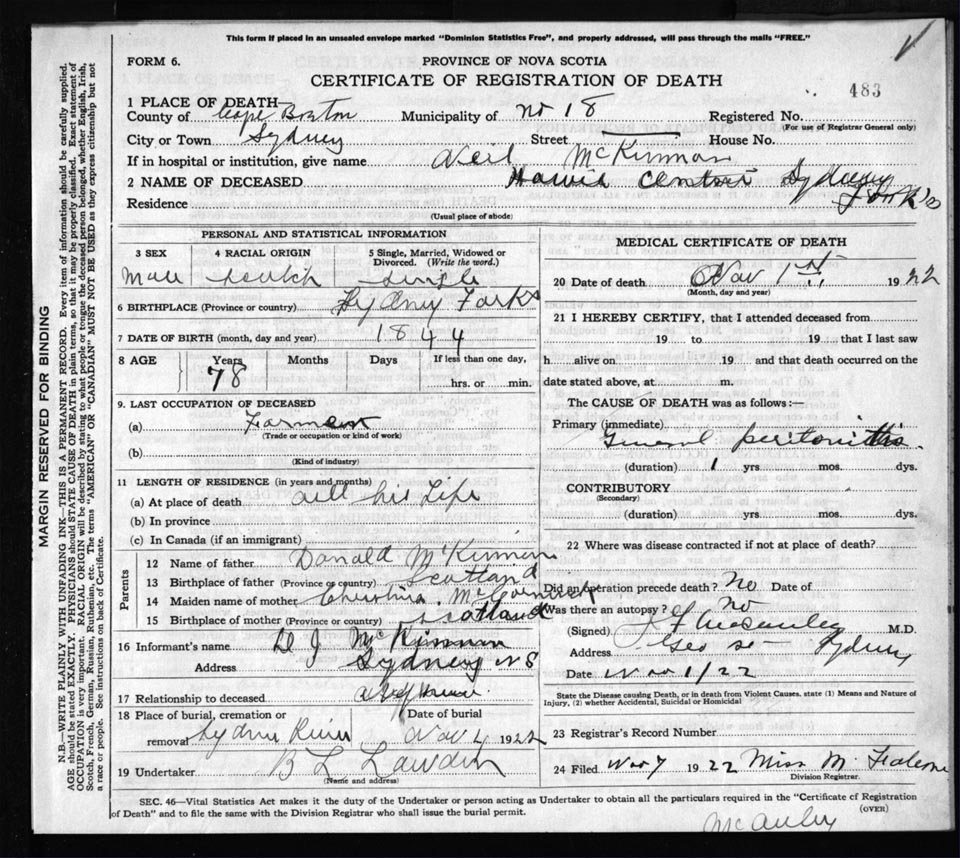 This form if placed in an unsealed envelope marked "Dominion Statistics Free", and properly addressed, will pass through the mails "FREE."
FORM 6.
PROVINCE OF NOVA SCOTIA
CERTIFICATE OF REGISTRATION OF DEATH
483
1 PLACE OF DEATH
County of Cape Breton Municipality of No 18 Registered No.
(For use of Registrar General only)
City or Town Sydney Street House No.
If in hospital or institution, give name Neil McKinnon
2 NAME OF DECEASED Sydney
Residence Forks
(Usual place of abode)
PERSONAL AND STATISTICAL INFORMATION
3 SEX 4 RACIAL ORIGIN 5 Single, Married, Widowed or Divorced. (Write the word.)
Male Scotch Single
6 BIRTHPLACE (Province or country) Sydney Forks
7 DATE OF BIRTH (month, day and year) 1844
8 AGE Years Months Days If less than one day,
78 hrs. or min.
9. LAST OCCUPATION OF DECEASED
(a) Farmer
(Trade or occupation or kind of work)
(b)
(Kind of industry)
11 LENGTH OF RESIDENCE (in years and months)
(a) At place of death all his Life
(b) In province
(c) In Canada (if an immigrant)
Parents
12 Name of father Donald McKinnon
13 Birthplace of father (Province or country) Scotland
14 Maiden name of mother Christina McCormick
15 Birthplace of mother (Province or country) Scotland
16 Informant's name D J McKinnon
Address Sydney N S
17 Relationship to deceased
18 Place of burial, cremation or Date of burial
removal Sydney River Nov 1922
19 Undertaker B L
(Name and address)
MEDICAL CERTIFICATE OF DEATH
20 Date of death Nov 1st 1922
(Month, day and year)
21 I HEREBY CERTIFY, that I attended deceased from
19 to 19 that I last saw
h alive on 19 and that death occurred on the
date stated above, at m.
The CAUSE OF DEATH was as follows:—
Primary (immediate)
General peritonitis
(duration) 1 yrs. mos. dys.
CONTRIBUTORY
(Secondary)
(duration) yrs. mos. dys.
22 Where was disease contracted if not at place of death?
Did an operation precede death? No Date of
Was there an autopsy? no
(Signed) M.D.
Address Geo st Sydney
Date Nov 1/22
State the Disease causing Death, or in death from Violent Causes, state (1) Means and Nature of
Injury, (2) whether Accidental, Suicidal or Homicidal
23 Registrar's Record Number
24 Filed Nov 7 1922 Miss M
Division Registrar.
SEC. 46—Vital Statistics Act makes it the duty of the Undertaker or person acting as Undertaker to obtain all the particulars required in the "Certificate of Registration
of Death" and to file the same with the Division Registrar who shall issue the burial permit.
(OVER)
MARGIN RESERVED FOR BINDING
N.B.—WRITE PLAINLY WITH UNFADING INK—THIS IS A PERMANENT RECORD. Every item of information should be carefully supplied.
AGE should be stated EXACTLY. PHYSICIANS should STATE CAUSE OF DEATH in plain terms, so that it may be properly classified. Exact statement of
OCCUPATION is very important. RACIAL ORIGIN will be described by stating to what people or tongue the deceased person belonged, whether English, Irish,
Scotch, French, German, Russian, Ruthenian, etc. The terms "AMERICAN" OR "CANADIAN" MUST NOT BE USED as they express citizenship but not
a race or people. See instructions on back of Certificate.